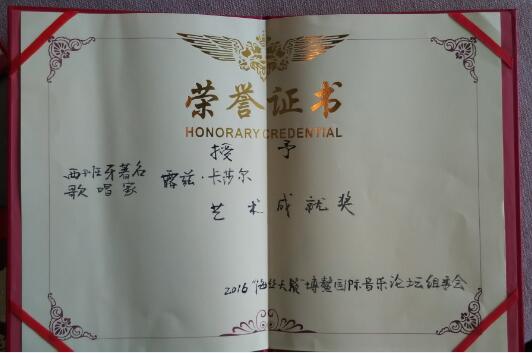 荣誉证书
HONORARY CREDENTIAL
授 予
西班牙著名
歌唱家
露兹·卡莎尔
艺术成就奖
2016“海丝天籁”博鳌国际音乐论坛组委会